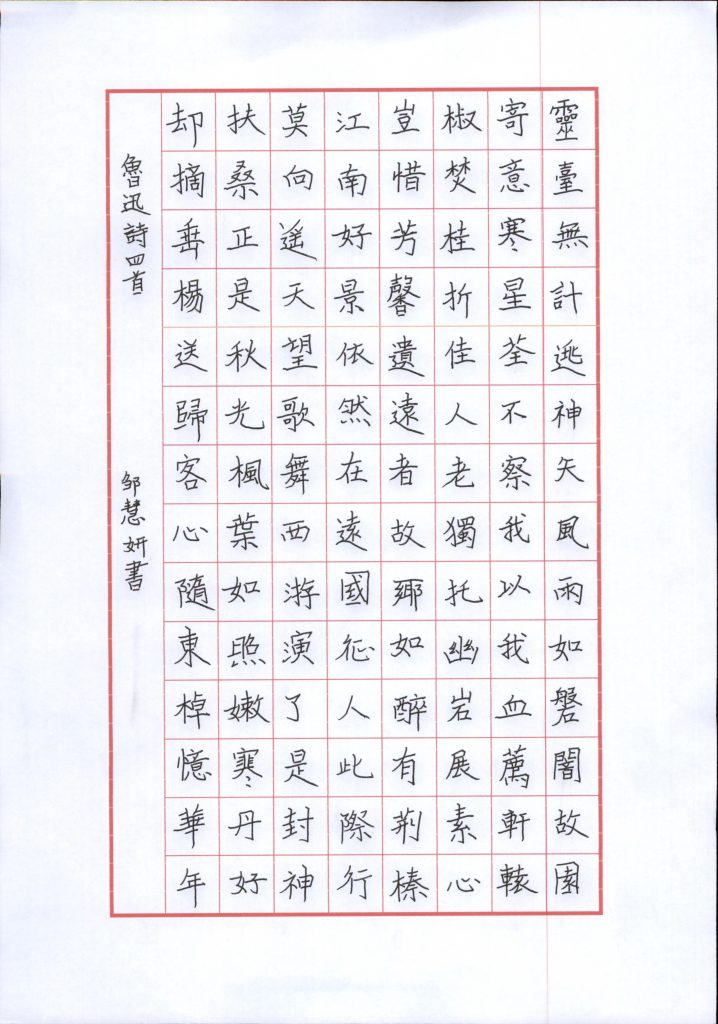 靈臺無計逃神矢風雨如磐闇故園
寄意寒星荃不察我以我血薦軒轅
椒焚桂折佳人老獨托幽岩展素心
豈惜芳馨遺遠者故鄉如醉有荊榛
江南好景依然在遠國征人此際行
莫向遙天望歌舞西游演了是封神
扶桑正是秋光楓葉如照嫩寒丹好
却摘垂楊送歸客心隨東棹憶華年
魯迅詩四首 邹慧妍書